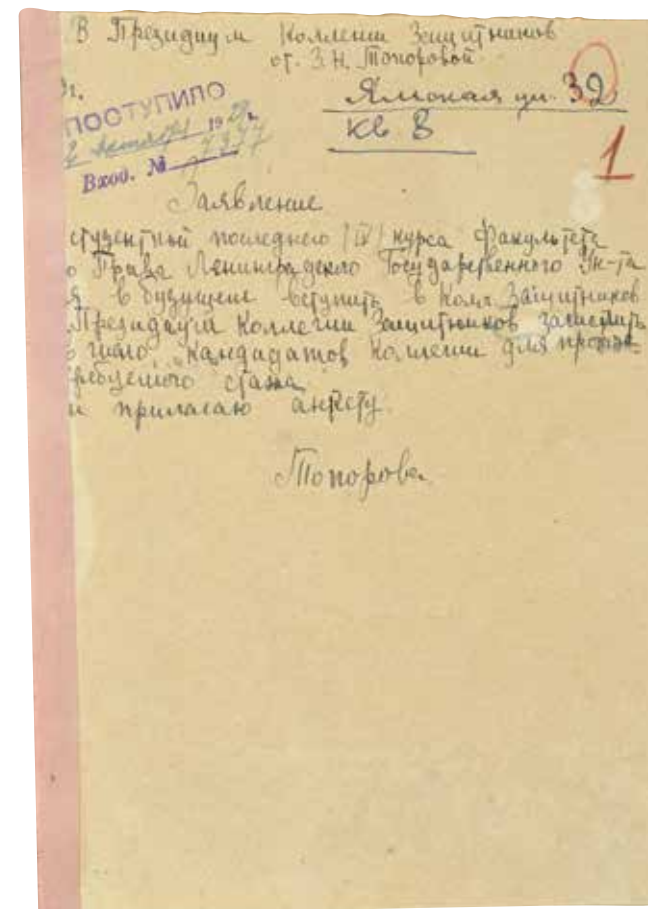 В Президиум Коллегии Защитников
от. З.Н. Топоровой
Ямская ул. 32
кв 8
1
ПОСТУПИЛО
октября 1929 г.
Вход. №
Заявление
студенткой последнего /IV/ курса Факультета
о Права Ленинградского Государственного Ун-та
я в будущем вступить в Колл. Защитников
Президиум Коллегии Защитников зачислить
в число кандидатов Коллегии для
стажа
и прилагаю анкету.
Топорова